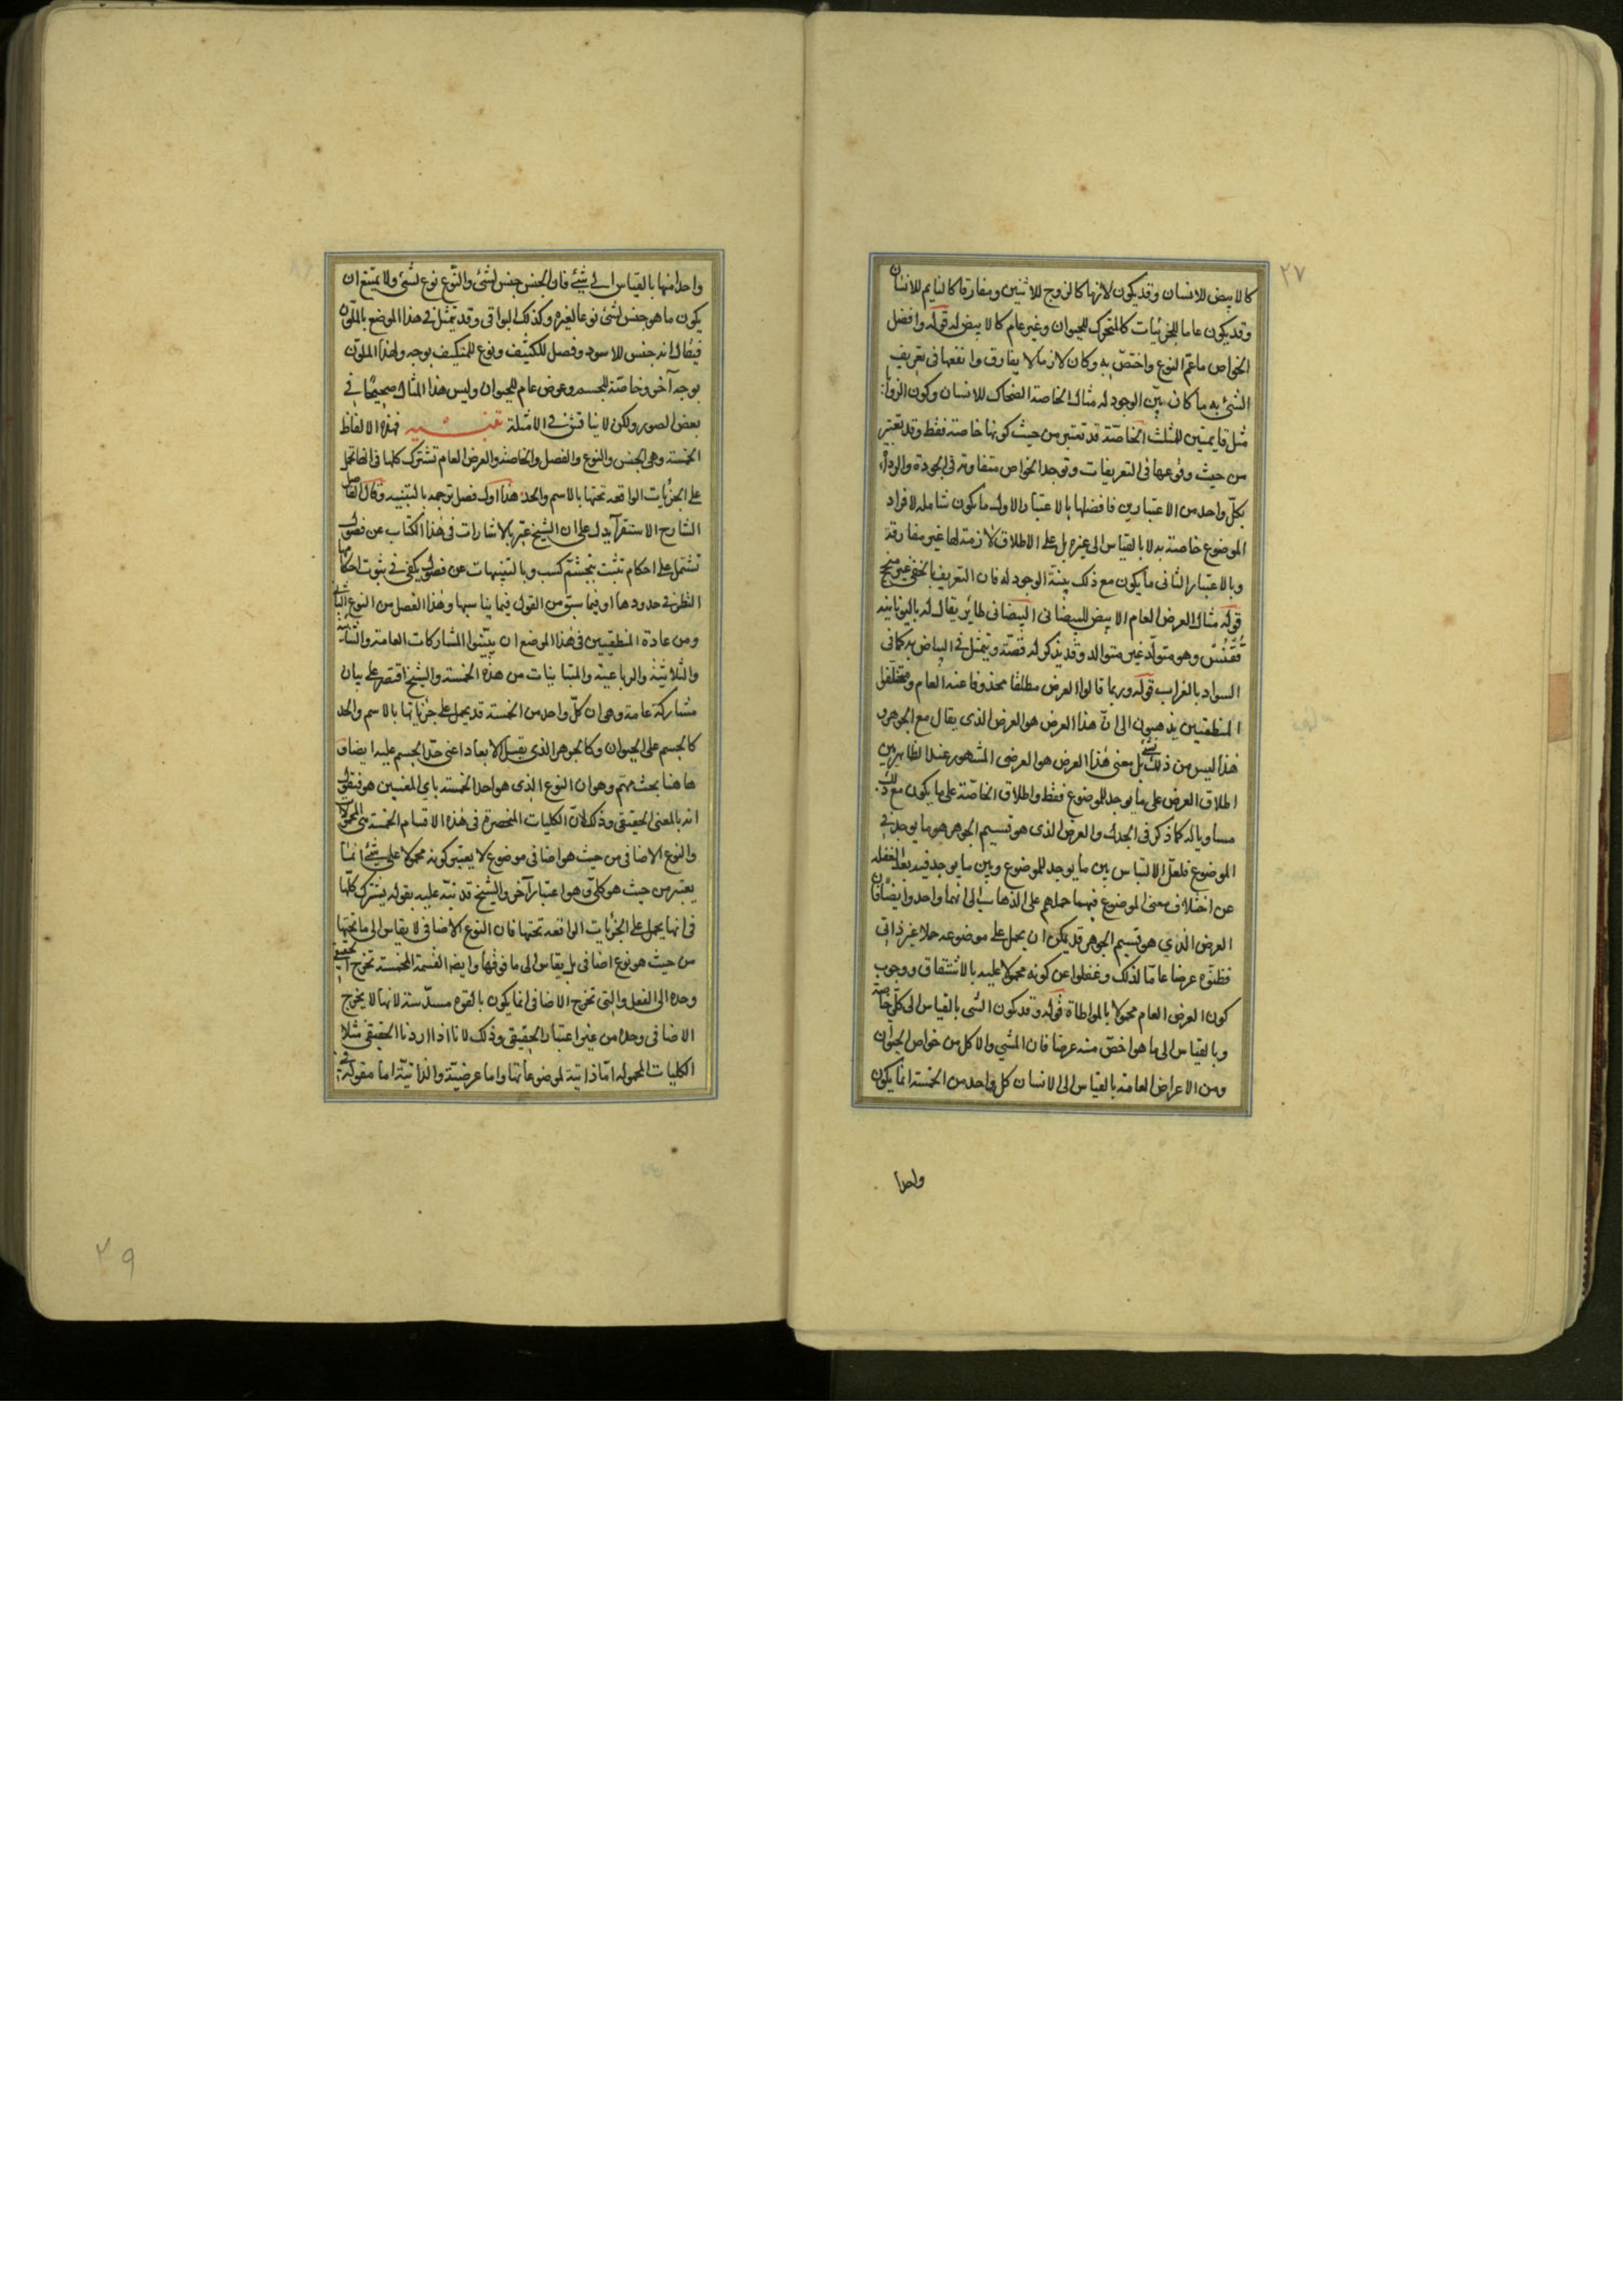 ٢٧
كالابيض للانسان وقد يكون لازما كالزوج للاثنين ومفارقا كالنايم للانسان
وقد يكون عاما للجزئيات كالمتحرك للحيوان وغير عام كالابيض له قوله وافضل
الخواص ما عمّ النوع واختصّ به وكان لازما لا يفارق وانفعها فى تعريف
الشئ به ما كان بيّن الوجود له مثال الخاصة الضحاك للانسان وكون الزوايا
مثل قايمتين للمثلث الخاصّة قد تعتبر من حيث كونها خاصة فقط وقد تعتبر
من حيث وقوعها فى التعريفات وتوجد الخواص متفاوته فى الجودة والرداءة
بكلّ واحد من الاعتبارين فافضلها بالاعتبار الاول ما يكون شامله لافراد
الموضوع خاصة به لا بالقياس الى غيره بل على الاطلاق لازمة لها غير مفارقة
وبالاعتبار الثانى ما يكون مع ذلك بيّنة الوجود له فان التعريف بالخفى غير صحيح
قوله مثال العرض العام الابيض للببضانى الببضانى طاير يقال له باليونانيه
ققنس وهو متولّد غير متوالد وقد يذكر له قصّة ويتمثل فى البياض به كما فى
السواد بالغراب قوله وربما قالوا العرض مطلقا محذوفا عنه العام ومتخلّفوا
المنطقيين يذهبون الى انّ هذا العرض هو العرض الذى يقال مع الجوهر و
هذا ليس من ذلك بشئ بل معنى هذا العرض هو العرضى المشهور عند الظاهريين
اطلاق العرض على ما يوجد للموضوع فقط واطلاق الخاصّة على ما يكون مع ذلك
مساويا له كما ذكر فى الجدل والعرض الذى هو قسيم الجوهر هو ما يوجد فى
الموضوع فلعلّ الالتباس بين ما يوجد للموضوع وبين ما يوجد فيه بعد الغفله
عن اختلاف معنى الموضوع فيهما حملهم على الذهاب الى انهما واحد وايضا فان
العرض الذي هو قسيم الجوهر قد يمكن ان يحمل على موضوعه حملا غير ذاتى
فظنّوه عرضا عامّا لذلك وغفلوا عن كونه محمولا عليه بالاشتقاق ووجوب
كون العرض العام محمولا بالمواطاة قوله وقد يكون الشى بالقياس الى كلّي خاصة
وبالقياس الى ما هو اخصّ منه عرضا فان المشي والاكل من خواص الحيوان
ومن الاعراض العامة بالقياس الى الانسان كل واحد من الخمسة انما يكون
واحدا
واحدا منها بالقياس الى شئ فان الجنس جنس لشئ والنّوع نوع لشئ ولا يمتنع ان
يكون ما هو جنس لشئ نوعا لغيره وكذلك البواقى وقد يتمثل فى هذا الموضع بالملوّن
فيقال انه جنس للاسود وفصل للكثيف ونوع للمتكيف بوجه ولهذا الملوّن
بوجه آخر وخاصّة للجسم وعرض عام للحيوان وليس هذا المثال صحيحًا فى
بعض الصور ولكن لا يناقش فى الامثلة تنبيه فهذه الالفاظ
الخمسة وهى الجنس والنوع والفصل والخاصة والعرض العام تشترك كلها فى انها تحمل
على الجزئيات الواقعه تحتها بالاسم والحد هذا اول فصل ترجمه بالتنبيه وقال الفاضل
الشارح الاستقرآ يدل على ان الشيخ عبّر بالاشارات فى هذا الكتاب عن فصول
تشتمل على احكام تثبت بتجشّم كسب وبالتنبيهات عن فصول يكفى فى ثبوت احكامها
النظر فى حدودها او فيما سبق من القول فيما يناسبها وهذا الفصل من النوع الثانى
ومن عادة المنطقيين فى هذا الموضع ان يبيّنوا المشاركات العامة والثنائية
والثلاثيّة والرباعية والمباينات من هذه الخمسة والشيخ اقتصر على بيان
مشاركة عامة وهى ان كلّ واحد من الخمسة قد يحمل على جزئياتها بالاسم والحد
كالجسم على الحيوان وكالجوهر الذى يقبل الابعاد اعنى حدّ الجسم عليه ايضا و
هاهنا بحث مهمّ وهو ان النوع الذى هو احد الخمسة باي المعنيين هو فنقول
انه بالمعنى الحقيقى وذلك لانّ الكليات المنحصرة فى هذه الاقسام الخمسة هى المحمولات
والنوع الاضافى من حيث هو اضافى موضوع لا يعتبر كونه محمولا على شئ انما
يعتبر من حيث هو كلى وهو اعتبار آخر والشيخ قد نبّه عليه بقوله يشترك كلّها
فى انها يحمل على الجزئيات الواقعه تحتها فان النوع الاضافى لا يقاس الى ما تحتها
من حيث هو نوع اضافى بل يقاس الى ما فوقها وايضا القسمة المخمسة تخرج الحقيقى
وحده الى الفعل والتى تخرج الاضافى انما يكون بالقوه مسدّسة لانها لا يخرج
الاضافى وحده من غير اعتبار الحقيقى وذلك لانا اذا اردنا الحقيقى مثلا
الكليات المحموله امّا ذاتية لموضوعاتها واما عرضيّة والذاتيّة اما مقوله فى
٢٩